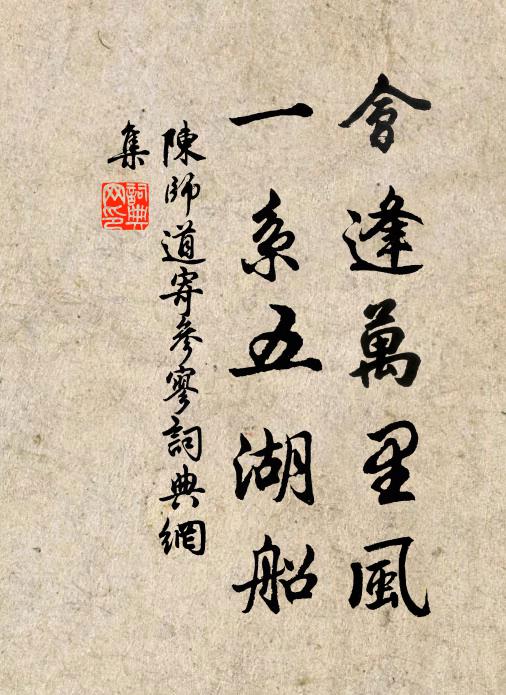 會逢萬里風
一系五湖船
陳師道寄參寥詞典網
集
詞典
网印